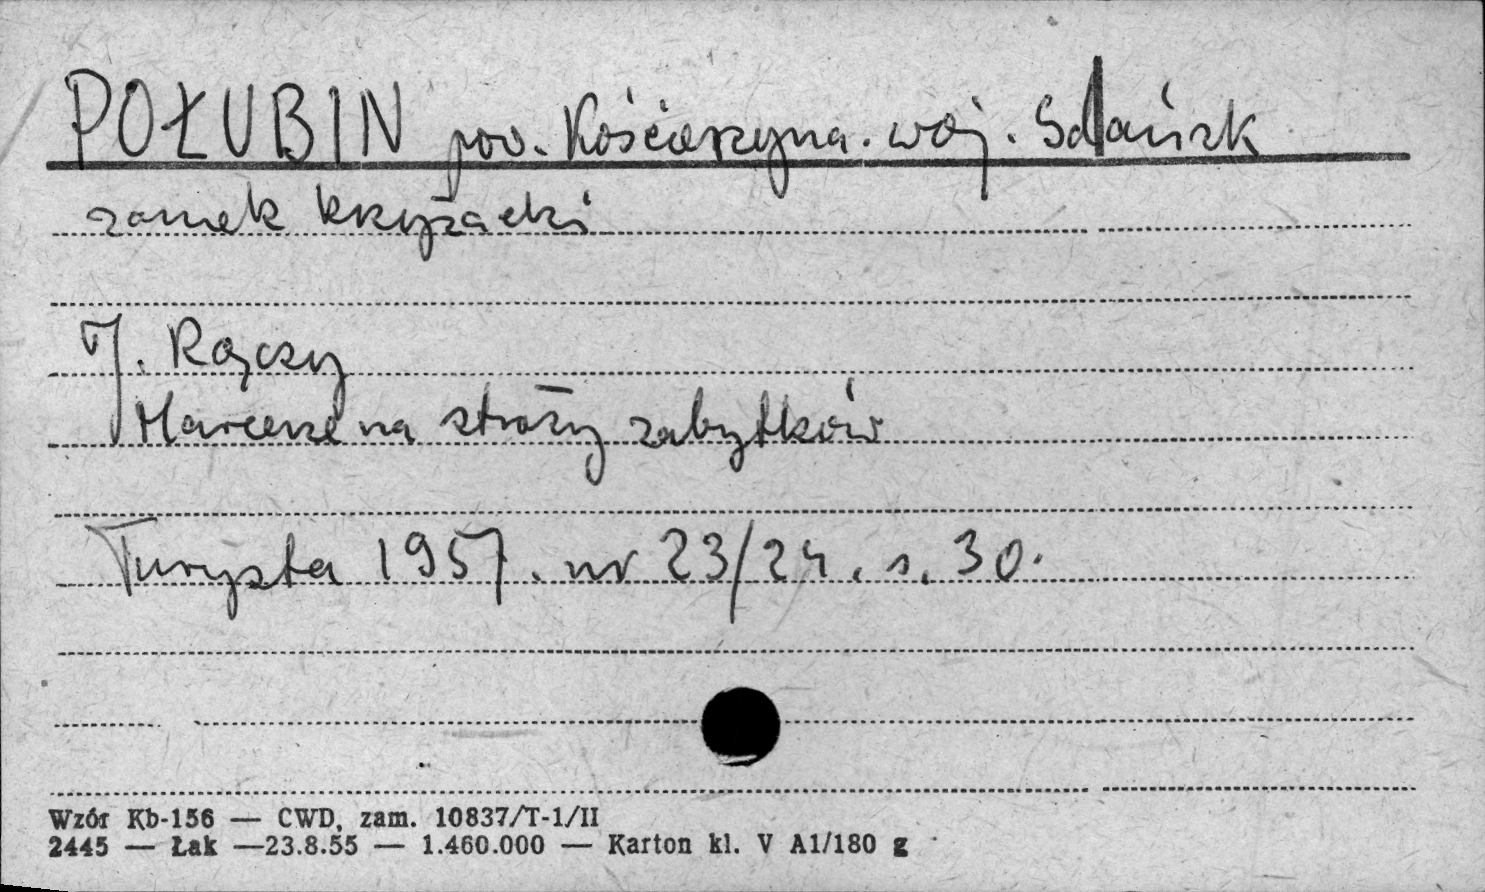 POŁUBIN pow. Kościerzyna. woj. Gdańsk
zamek krzyżacki
J. Rajczy
Harcerze na straży zabytków
Turysta 1957. nr 23/24. s. 30.
Wzór Kb-156 — CWD, zam. 10837/T-1/II
2445 — Łak —23.8.55 — 1.460.000 — Karton kl. V A1/180 g